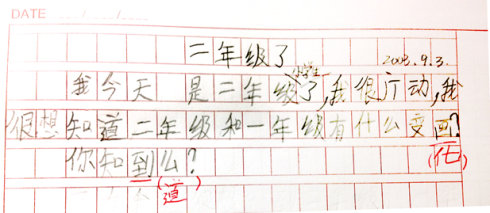 DATE
二年级了
小学生
我今天 是二年级了,我很厅动,我
很想知道二年级和一年级有什么变画?
(化)
你知到么?
(道)